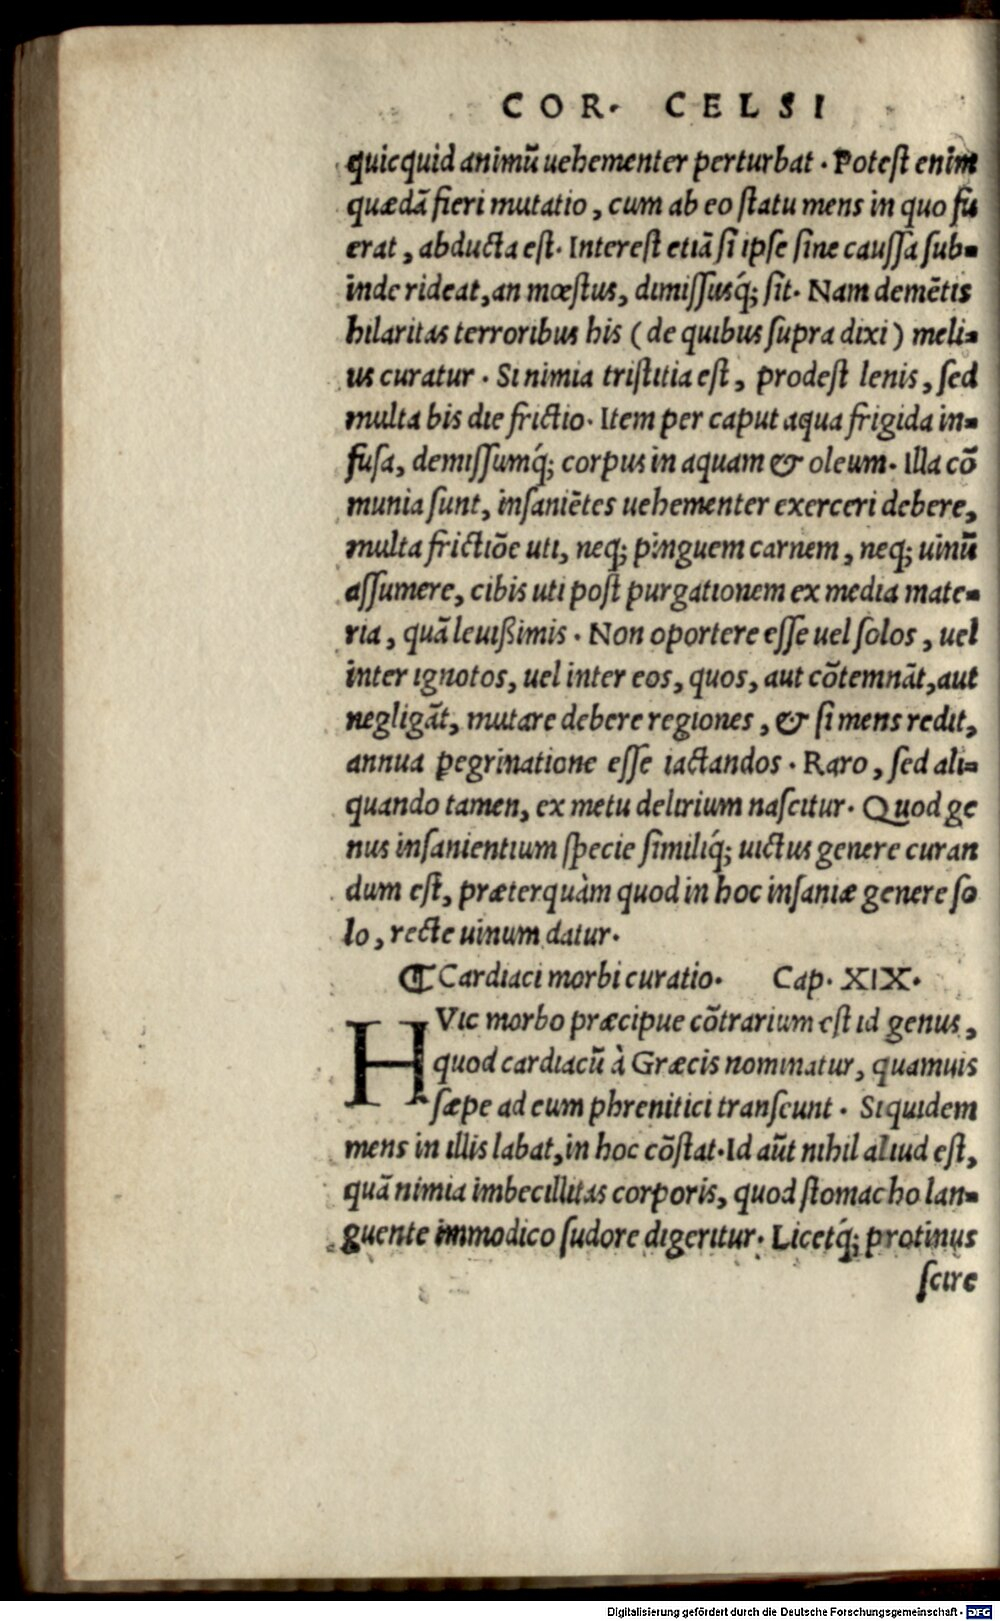 COR. CELSI
quicquid animū uehementer perturbat. Potest enim
quædā fieri mutatio, cum ab eo statu mens in quo fu
erat, abducta est. Interest etiā si ipse sine caussa sub-
inde rideat, an mœstus, dimissusq́; sit. Nam demētis
hilaritas terroribus his (de quibus supra dixi) meli-
us curatur. Si nimia tristitia est, prodest lenis, sed
multa bis die frictio. Item per caput aqua frigida in-
fusa, demissumq́; corpus in aquam & oleum. Illa cō
munia sunt, insaniētes uehementer exerceri debere,
multa frictiōe uti, neq; pinguem carnem, neq; uinū
assumere, cibis uti post purgationem ex media mate-
ria, quā leuißimis. Non oportere esse uel solos, uel
inter ignotos, uel inter eos, quos, aut cōtemnāt, aut
negligāt, mutare debere regiones, & si mens redit,
annua ꝑegrinatione esse iactandos. Raro, sed ali-
quando tamen, ex metu delirium nascitur. Quod ge
nus insanientium specie similiq́; uictus genere curan
dum est, præterquàm quod in hoc insaniæ genere so
lo, recte uinum datur.
¶ Cardiaci morbi curatio. Cap. XIX.
HVic morbo præcipue cōtrarium est id genus,
quod cardiacū à Græcis nominatur, quamuis
sæpe ad eum phrenitici transeunt. Siquidem
mens in illis labat, in hoc cōstat. Id aūt nihil aliud est,
quā nimia imbecillitas corporis, quod stomacho lan-
guente immodico sudore digeritur. Licetq́; protinus
scire
Digitalisierung gefördert durch die Deutsche Forschungsgemeinschaft - DFG